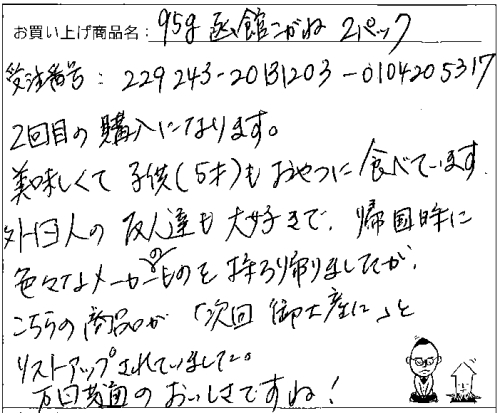 お買い上げ商品名: 95g 函館こがね 2パック
受注番号: 229243-20131203-0104205317
2回目の購入になります。
美味しくて 子供(5才)も おやつに食べています
外国人の 友人達も 大好きで、帰国時に
色々なメーカーのものを 持ち帰りましたが、
こちらの商品が「次回 御土産に」と
リストアップされていました。
万国共通の おいしさですね!